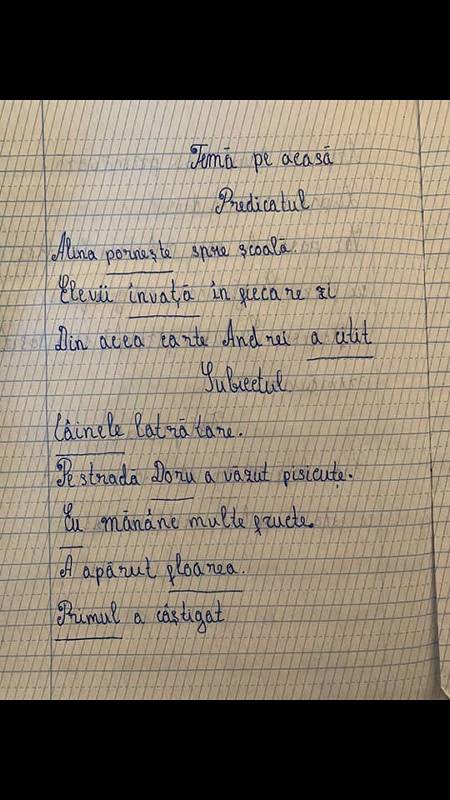 Temă pe acasă
Predicatul
Alina pornește spre școală.
Elevii învață în fiecare zi
Din acea carte Andrei a citit
Subiectul
Câinele latră tare.
Pe stradă Doru a văzut pisicuțe.
Eu mănânc multe fructe.
A apărut floarea.
Primul a câștigat